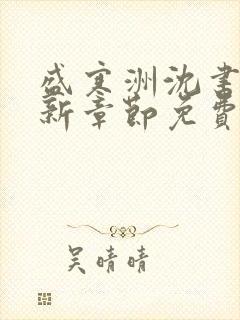 盛寒洲沈书
新章节免费
吴晴晴